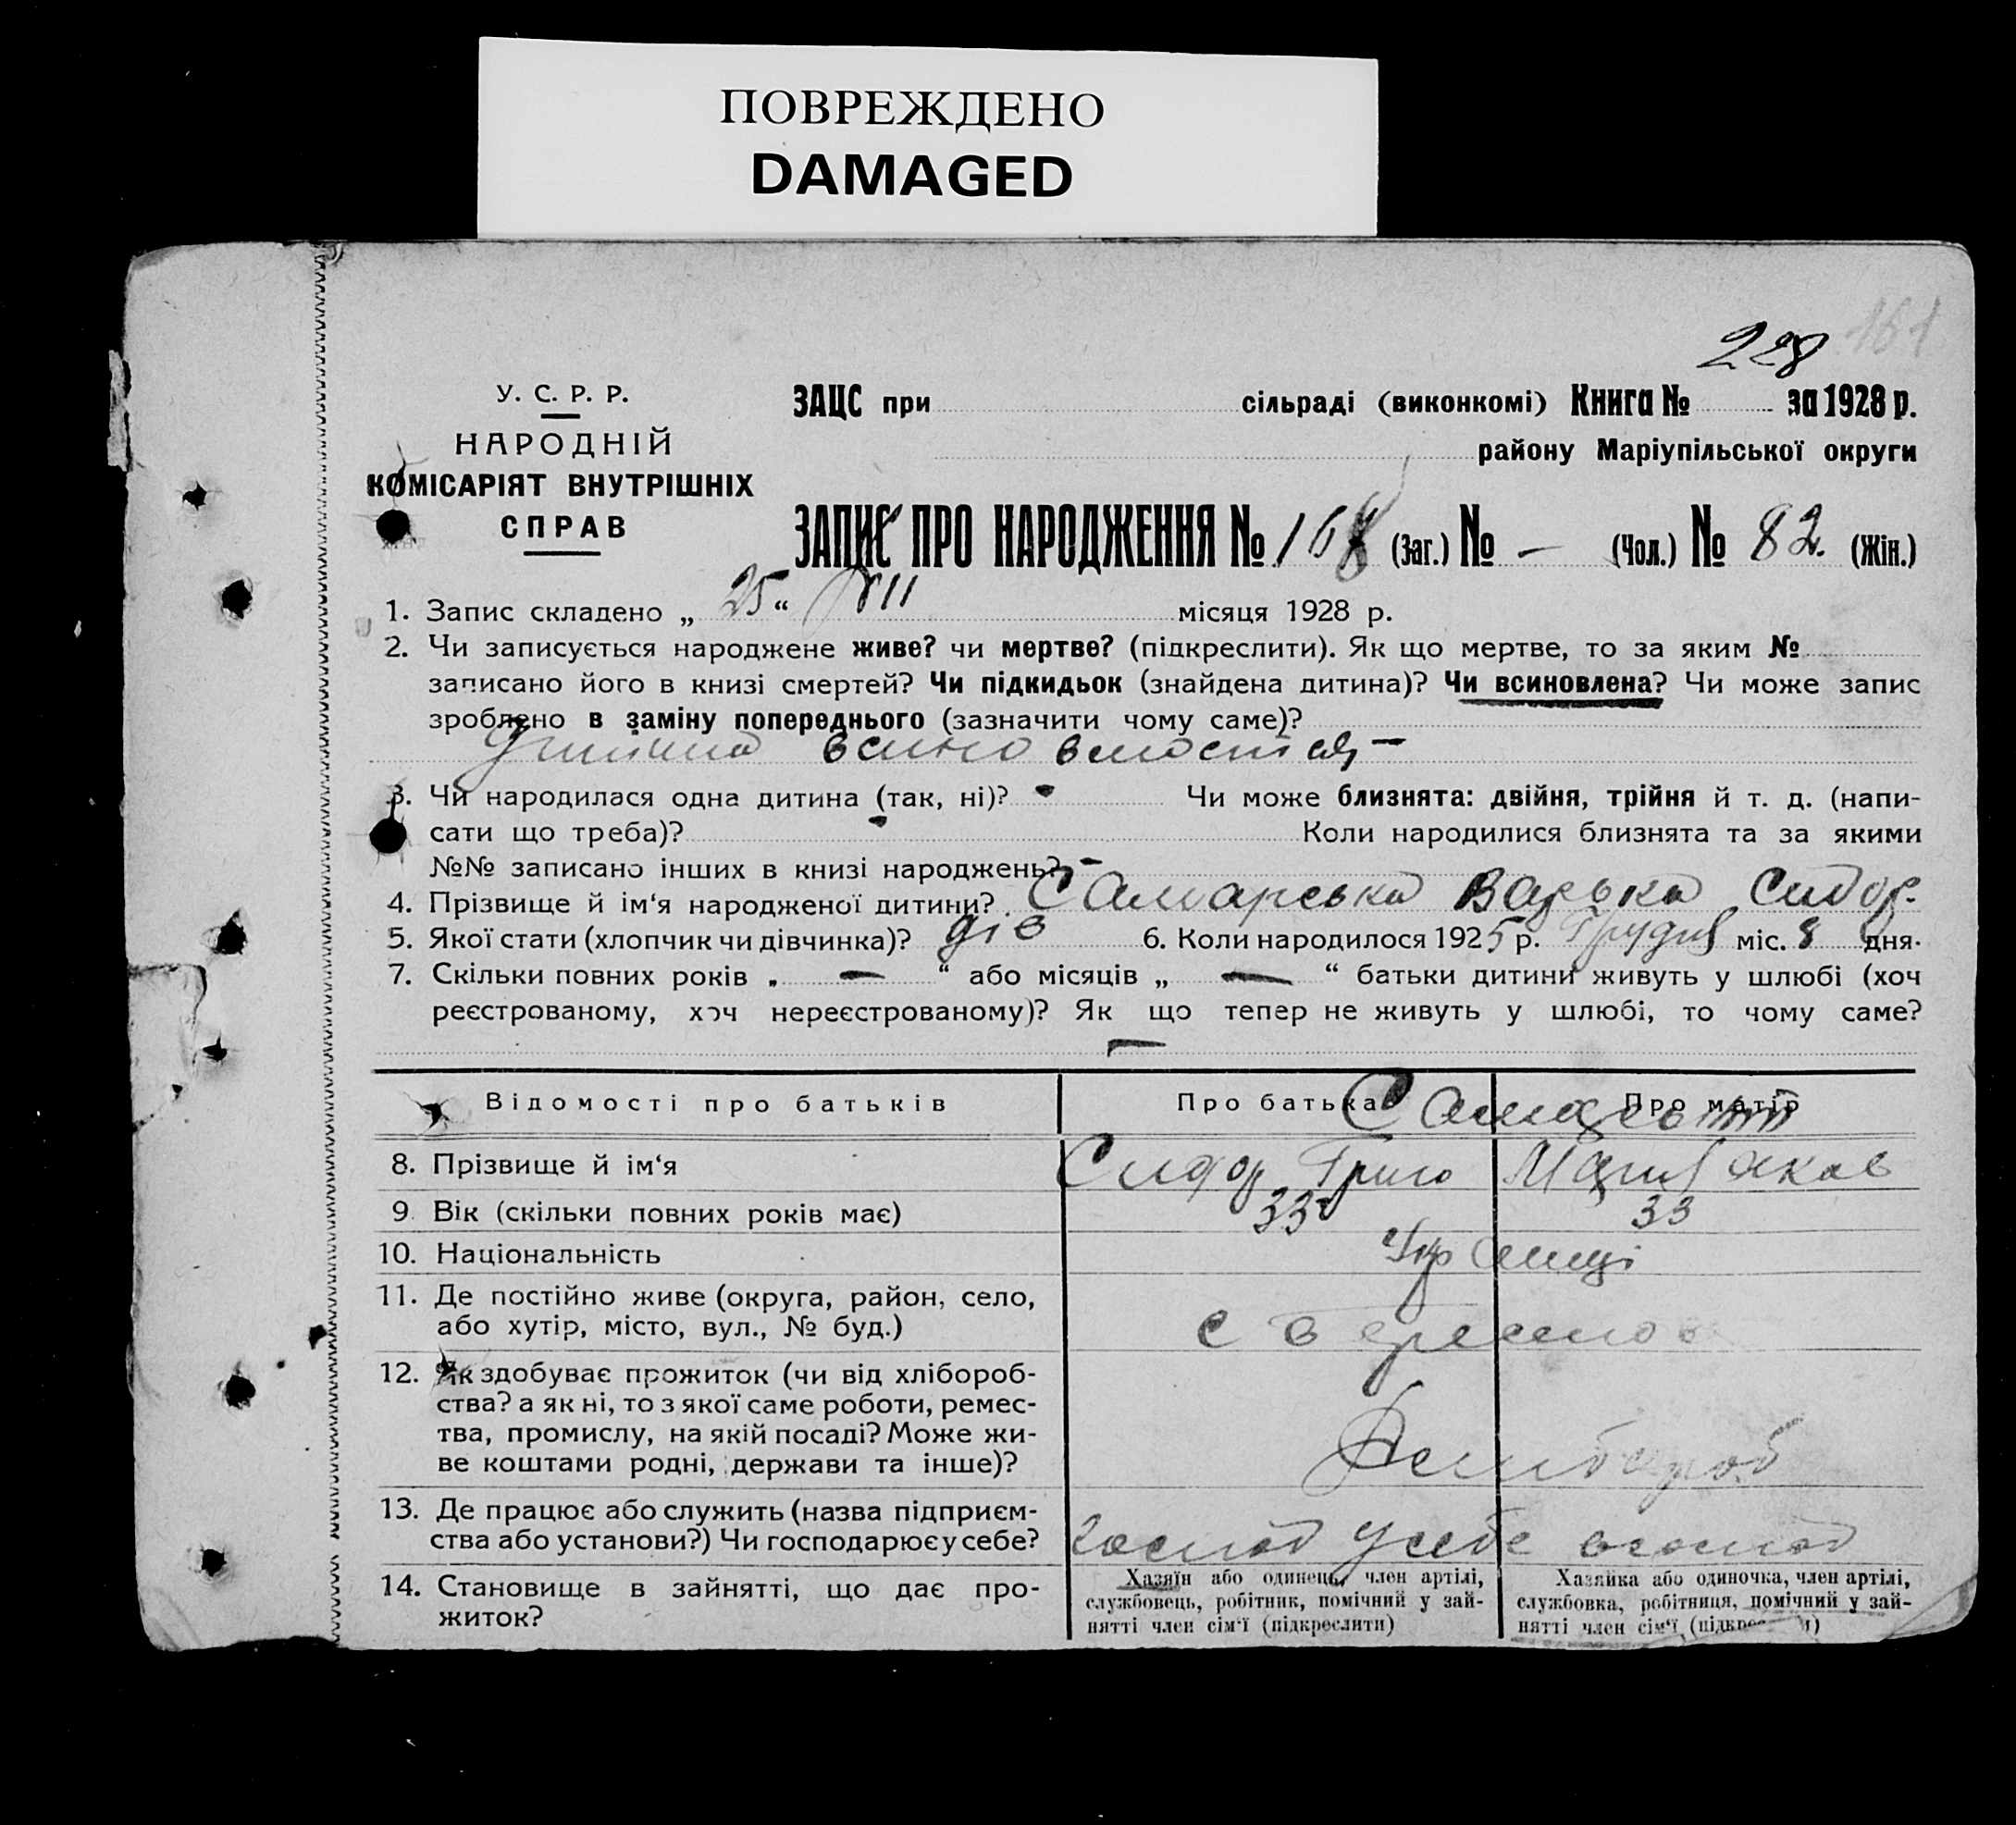 ПОВРЕЖДЕНО
DAMAGED
161
228
У. С. Р. Р.
НАРОДНІЙ
КОМІСАРІЯТ ВНУТРІШНІХ
СПРАВ
ЗАЦС при сільраді (виконкомі) Книга № за 1928 р.
району Маріупільської округи
ЗАПИС ПРО НАРОДЖЕННЯ № 168 (Заг.) № — (Чол.) № 82. (Жін.)
1. Запис складено „ 25 “ VIII місяця 1928 р.
2. Чи записується народжене живе? чи мертве? (підкреслити). Як що мертве, то за яким №
записано його в книзі смертей? Чи підкидьок (знайдена дитина)? Чи всиновлена? Чи може запис
зроблено в заміну попереднього (зазначити чому саме)?
дитина
3. Чи народилася одна дитина (так, ні)? - Чи може близнята: двійня, трійня й т. д. (напи-
сати що треба)? - Коли народилися близнята та за якими
№№ записано інших в книзі народжень? -
4. Прізвище й ім‘я народженої дитини? Самарська Варька Сидор.
5. Якої статі (хлопчик чи дівчинка)? дів 6. Коли народилося 1925 р. Грудня міс. 8 дня.
7. Скільки повних років „ — “ або місяців „ — “ батьки дитини живуть у шлюбі (хоч
реєстрованому, хоч нереєстрованому)? Як що тепер не живуть у шлюбі, то чому саме?
—
Відомості про батьків Про батька Про матір
8. Прізвище й ім‘я Сидор Григо Марія Яков
9. Вік (скільки повних років має) 33 33
10. Національність Українці
11. Де постійно живе (округа, район, село,
або хутір, місто, вул., № буд.)
12. Як здобуває прожиток (чи від хлібороб-
ства? а як ні, то з якої саме роботи, ремес-
тва, промислу, на якій посаді? Може жи-
ве коштами родні, держави та інше)?
Хлібороб
13. Де працює або служить (назва підприєм-
ства або установи?) Чи господарює у себе? господ у себе
14. Становище в зайнятті, що дає про-
житок?
Хазяїн або одинець, член артілі,
службовець, робітник, помічний у зай-
нятті член сім‘ї (підкреслити)
Хазяйка або одиночка, член артілі,
службовка, робітниця, помічний у зай-
нятті член сім‘ї